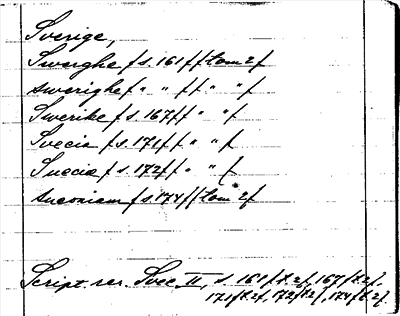 Sverige,
Swerghe / s. 161 // tom 2 /
swerighe / " " // " " /
Swerike / s. 167 // " " /
Svecia / s. 171 // " " /
Suecia / s. 172 // " " /
sueoniam / s. 174 // tom 2 /
Script. rer. Svec. II, s. 161 /t. 2/, 167 /t. 2/,
171 /t. 2/, 172 /t. 2/, 174 /t. 2/.